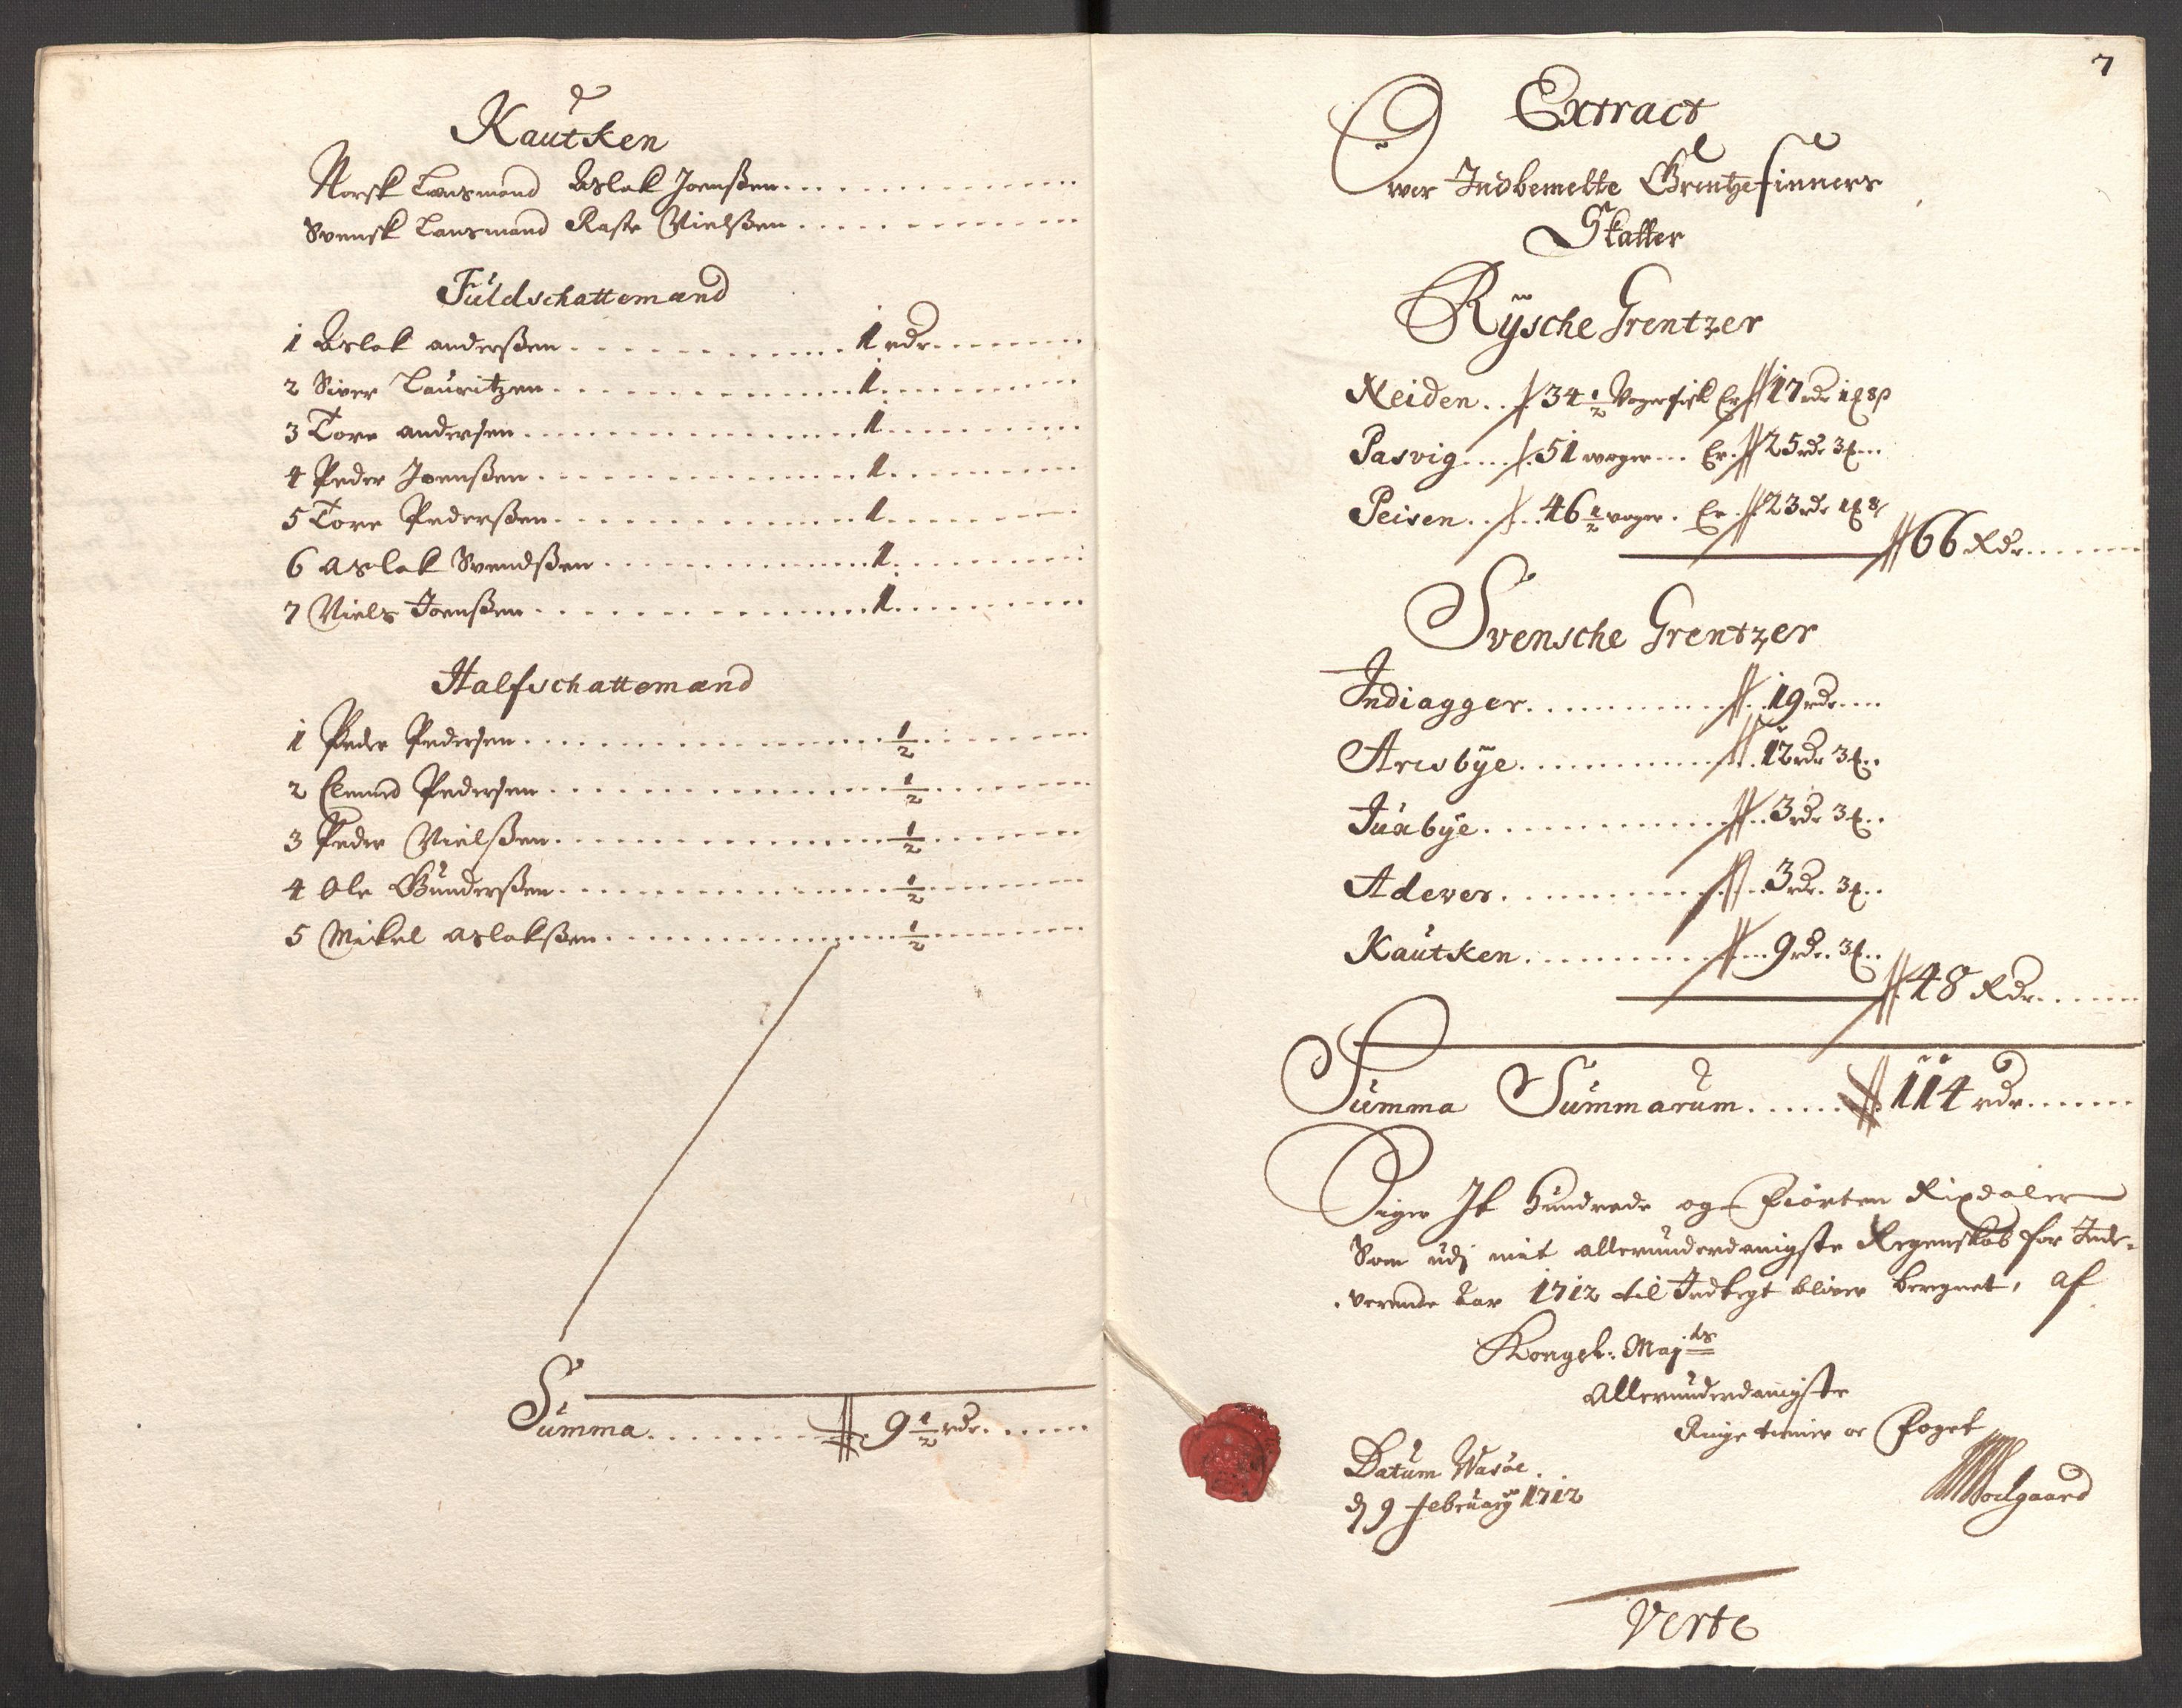 Kautken
Norsk Lænsmand Aslak Joensßen
Svensk Lænsmand Raste Nielsßen
Füldschattemænd
1 Aslak andersßen 1 rdr
2 Siver Lauritzen 1
3 Tore andersen 1
4 Peder Joensßen 1
5 Tore Pedersßen 1
6 Aslak Svendsßen 1
7 Niels Joensßen 1
Halfschattemænd
1 Peder Pedersen 1/2
2 Clemed Pedersen 1/2
3 Peder Nielsßen 1/2
4 Ole Gundersßen 1/2
5 Mikel Aslaksßen 1/2
Summa 9 1/2 rdr
7
Extract
Over Indbemelte Grentzefinners
Skatter
Rÿsche Grentzer
Neiden 34 1/2 Voger fisk Er 17 rdr 1 ₰ 8 β
Pasvig 51 woger Er 25 rdr 3
Peisen 46 1/2 woger Er 23 rdr 1 8
66 Rdr
Svensche Grentzer
Indiagger 19 rdr
Arisbÿe 12 rdr 3
Juabÿe 3 rdr 3
Adewes 3 rdr 3
Kautken 9 rdr 3
48 Rdr
Summa Summarum 114 rdr
Siger Jt Hundrede og Fiorten Rixdaler
Som udj mit allerunderdanigste Regenskab for Inde-
verende Aar 1712 til Indtegt bliver beregnet, af
Kongel: Maj:ts
Allerunderdanigste
Ringe tienner oc Foget
Datum Wasöe
d 9 februarÿ 1712
Soelgaard
Verte